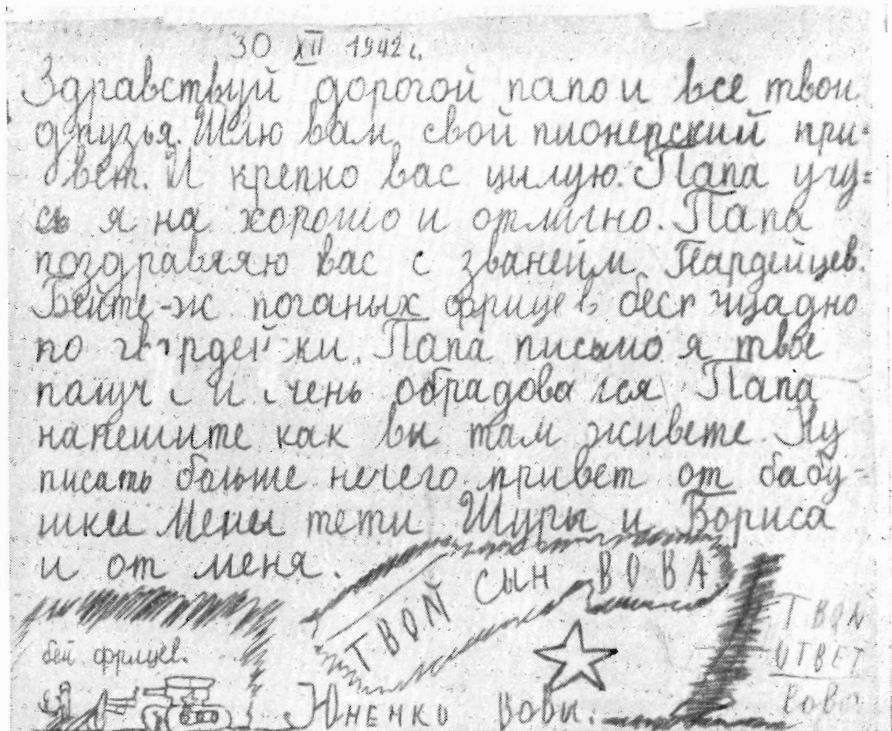 30 XII 1942 г.
Здравствуй дорогой папо и все твои
друзья. Шлю вам свой пионерский при-
вет. И крепко вас цилую. Папа учу-
сь я на хорошо и отлично. Папа
поздравляю вас с званейм Гвардейцев.
Бейте-ж поганых фрицев беспощадно
по гвардейски. Папа письмо я твое
палучил и очень обрадовался Папа
напешите как вы там живете. Ну
писать больше нечего привет от бабу-
шки Мены тети Шуры и Бориса
и от меня.
ТВОЙ СЫН ВОВА
бей фрицев.
Юненко Вовы.
ТВОЙ
ОТВЕТ
Вовы